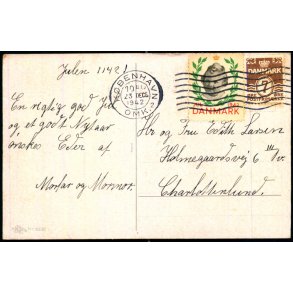 Julen 1942!
En rigtig god Jul
og et godt Nytaar
ønskes Eder af
Morfar og Mormor.
KØBENHAVN
23 DEC.
1942
OMK.
DANMARK
DANMARK
7
Hr og Fru Edith Larsen
Holmegaardsvej 6 III Tv.
Charlottenlund.